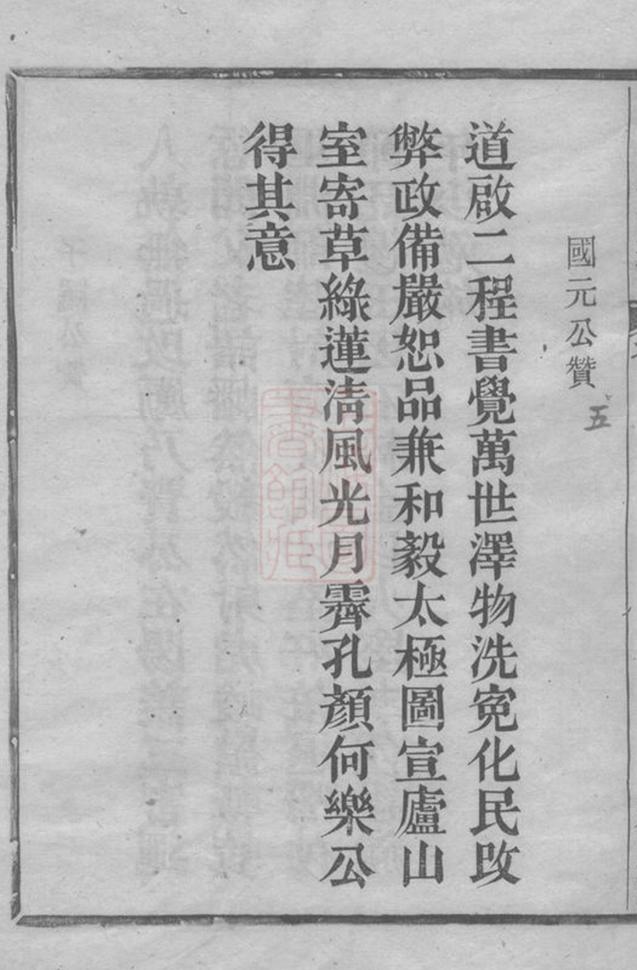 國元公贊
五
道啟二程書覺萬世澤物洗寃化民攺
弊政備嚴恕品兼和毅太極圖宣廬山
室寄草綠蓮淸風光月霽孔顏何樂公
得其意